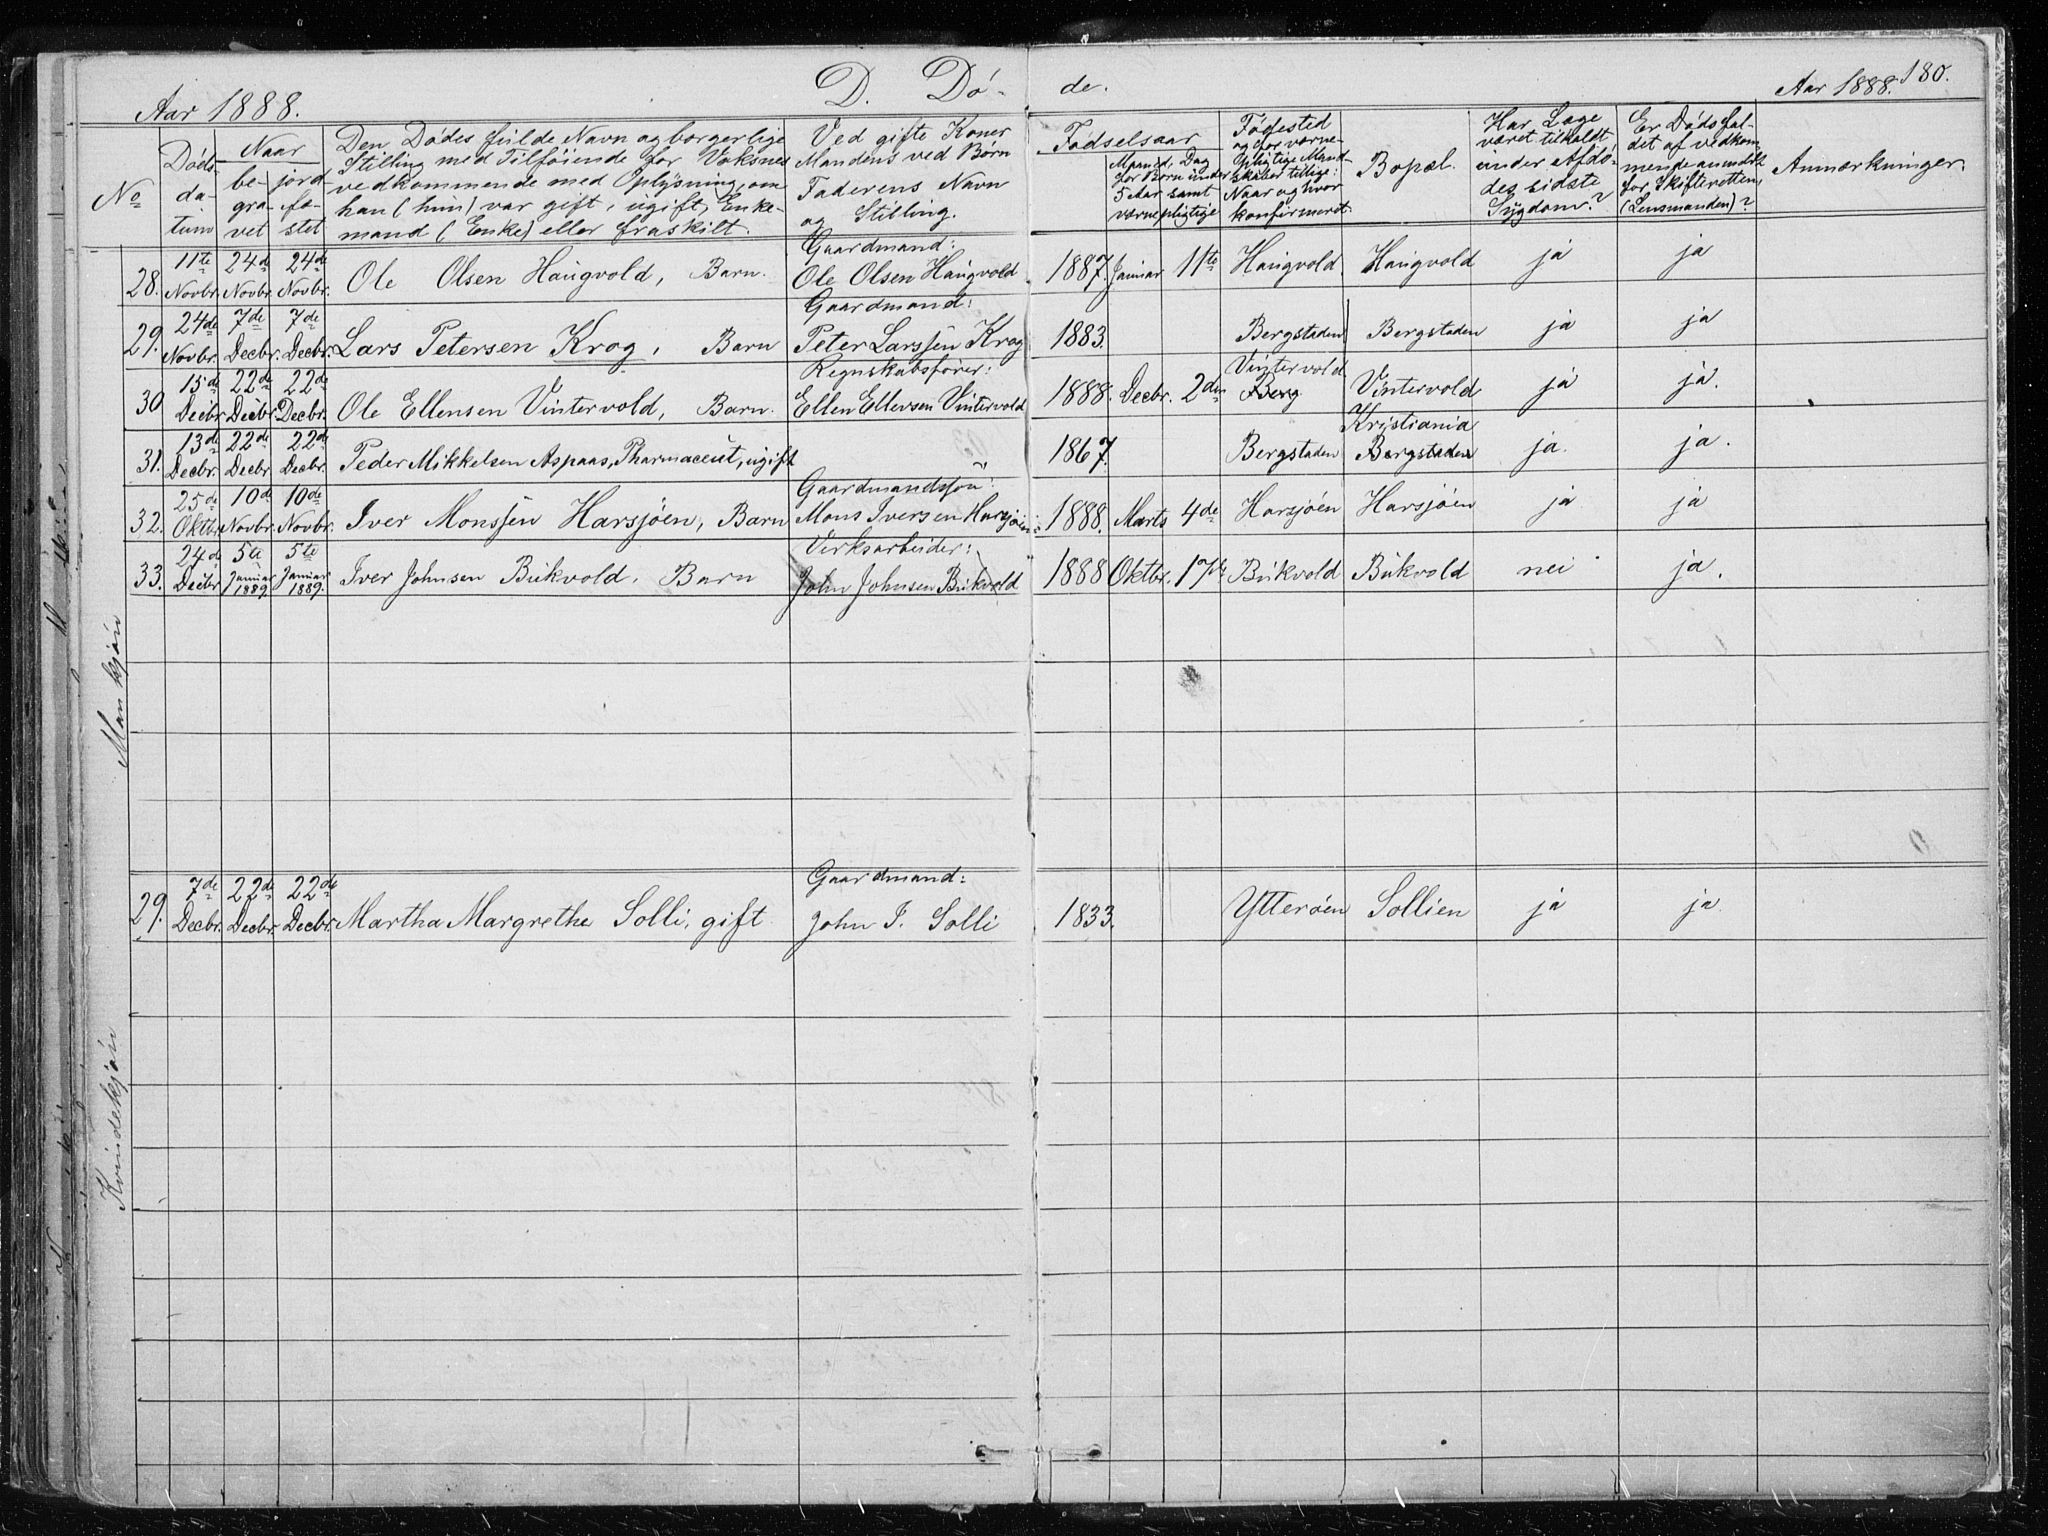 Aar 1888. D. Dö- de. Aar 1888. 180.
No
Döds-
da-
tum
Naar
be-
gra-
vet
jord-
fæ-
stet
Den Dödes fulde Navn og borgerlige
Stilling med Tilföiende for Voksnes
vedkommende med Oplysning, om
han (hun) var gift, ugift, Enke-
mand (Enke) eller fraskilt.
Ved gifte Koner
Mandens ved Börn
Faderens Navn
og Stilling.
Födselsaar
Maaned. Dag
for Börn under
5 Aar samt
værnepligtige
Födested
og for værne-
pligtige Mand-
skaber tillige:
Naar og hvor
konfirmeret.
Bopæl.
Har Læge
været tilkaldt
under afdö-
des sidste
Sygdom?
Er Dödsfal-
det af vedkom-
mende anmeldt
for Skifteretten,
(Lensmanden)?
Anmærkninger.
Mankjön
11te 24de 24de Gaardmand:
28. Novbr. Novbr. Novbr. Ole Olsen Haugvold, Barn. Ole Olsen Haugvold 1887. Januar 11te Haugvold Haugvold ja ja
24de 7de 7de Gaardmand:
29. Novbr. Decbr. Decbr. Lars Petersen Krog, Barn Peter Larssen Krog 1883. Bergstaden Bergstaden ja ja
15de 22de 22de Regnskabsförer: Vintervold
30 Decbr. Decbr. Decbr. Ole Ellensen Vintervold, Barn. Ellen Ellevsen Vintervold 1888. Decbr. 2den Berg Vintervold ja ja.
13de 22de 22de Kristiania
31. Decbr. Decbr Decbr. Peder Mikkelsen Aspaas, Pharmaceut, ugift 1867. Bergstaden Bergstaden ja. ja.
25de 10de 10de Gaardmandssön:
32. Oktb. Novbr. Novbr. Iver Monssen Harsjöen, Barn Mons Iversen Harsjöen 1888. Marts 4de Harsjöen Harsjöen ja ja
24de 5te 5te Verksarbeider:
33. Decbr Januar 1889. Januar 1889. Iver Johnsen Bukvold, Barn John Johnsen Bukvold 1888 Oktbr. 17de Bukvold Bukvold nei ja.
Kvindekjön
7de 22de 22de Gaardmand:
29. Decbr. Decbr. Decbr. Martha Margrethe Solli, gift John J. Solli 1833. Ytteröen Sollien ja ja